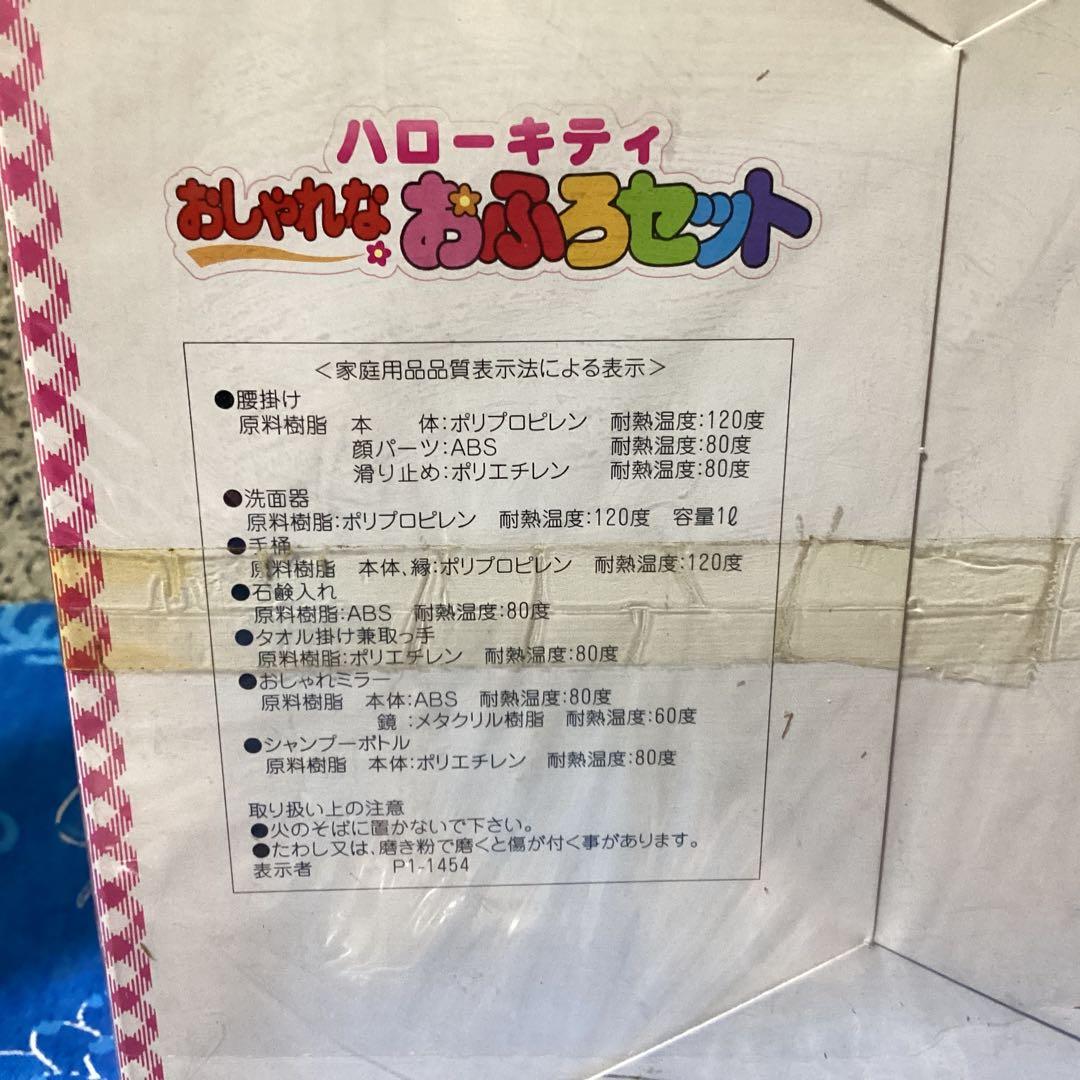 ハローキティ
おしゃれな おふろセット
＜家庭用品品質表示法による表示＞
●腰掛け
原料樹脂 本 体:ポリプロピレン 耐熱温度:120度
顔パーツ:ABS 耐熱温度:80度
滑り止め:ポリエチレン 耐熱温度:80度
●洗面器
原料樹脂:ポリプロピレン 耐熱温度:120度 容量1ℓ
●手桶
原料樹脂 本体、縁:ポリプロピレン 耐熱温度:120度
●石鹸入れ
原料樹脂:ABS 耐熱温度:80度
●タオル掛け兼取っ手
原料樹脂:ポリエチレン 耐熱温度:80度
●おしゃれミラー
原料樹脂 本体:ABS 耐熱温度:80度
鏡:メタクリル樹脂 耐熱温度:60度
●シャンプーボトル
原料樹脂 本体:ポリエチレン 耐熱温度:80度
取り扱い上の注意
●火のそばに置かないで下さい。
●たわし又は、磨き粉で磨くと傷が付く事があります。
表示者 P1-1454